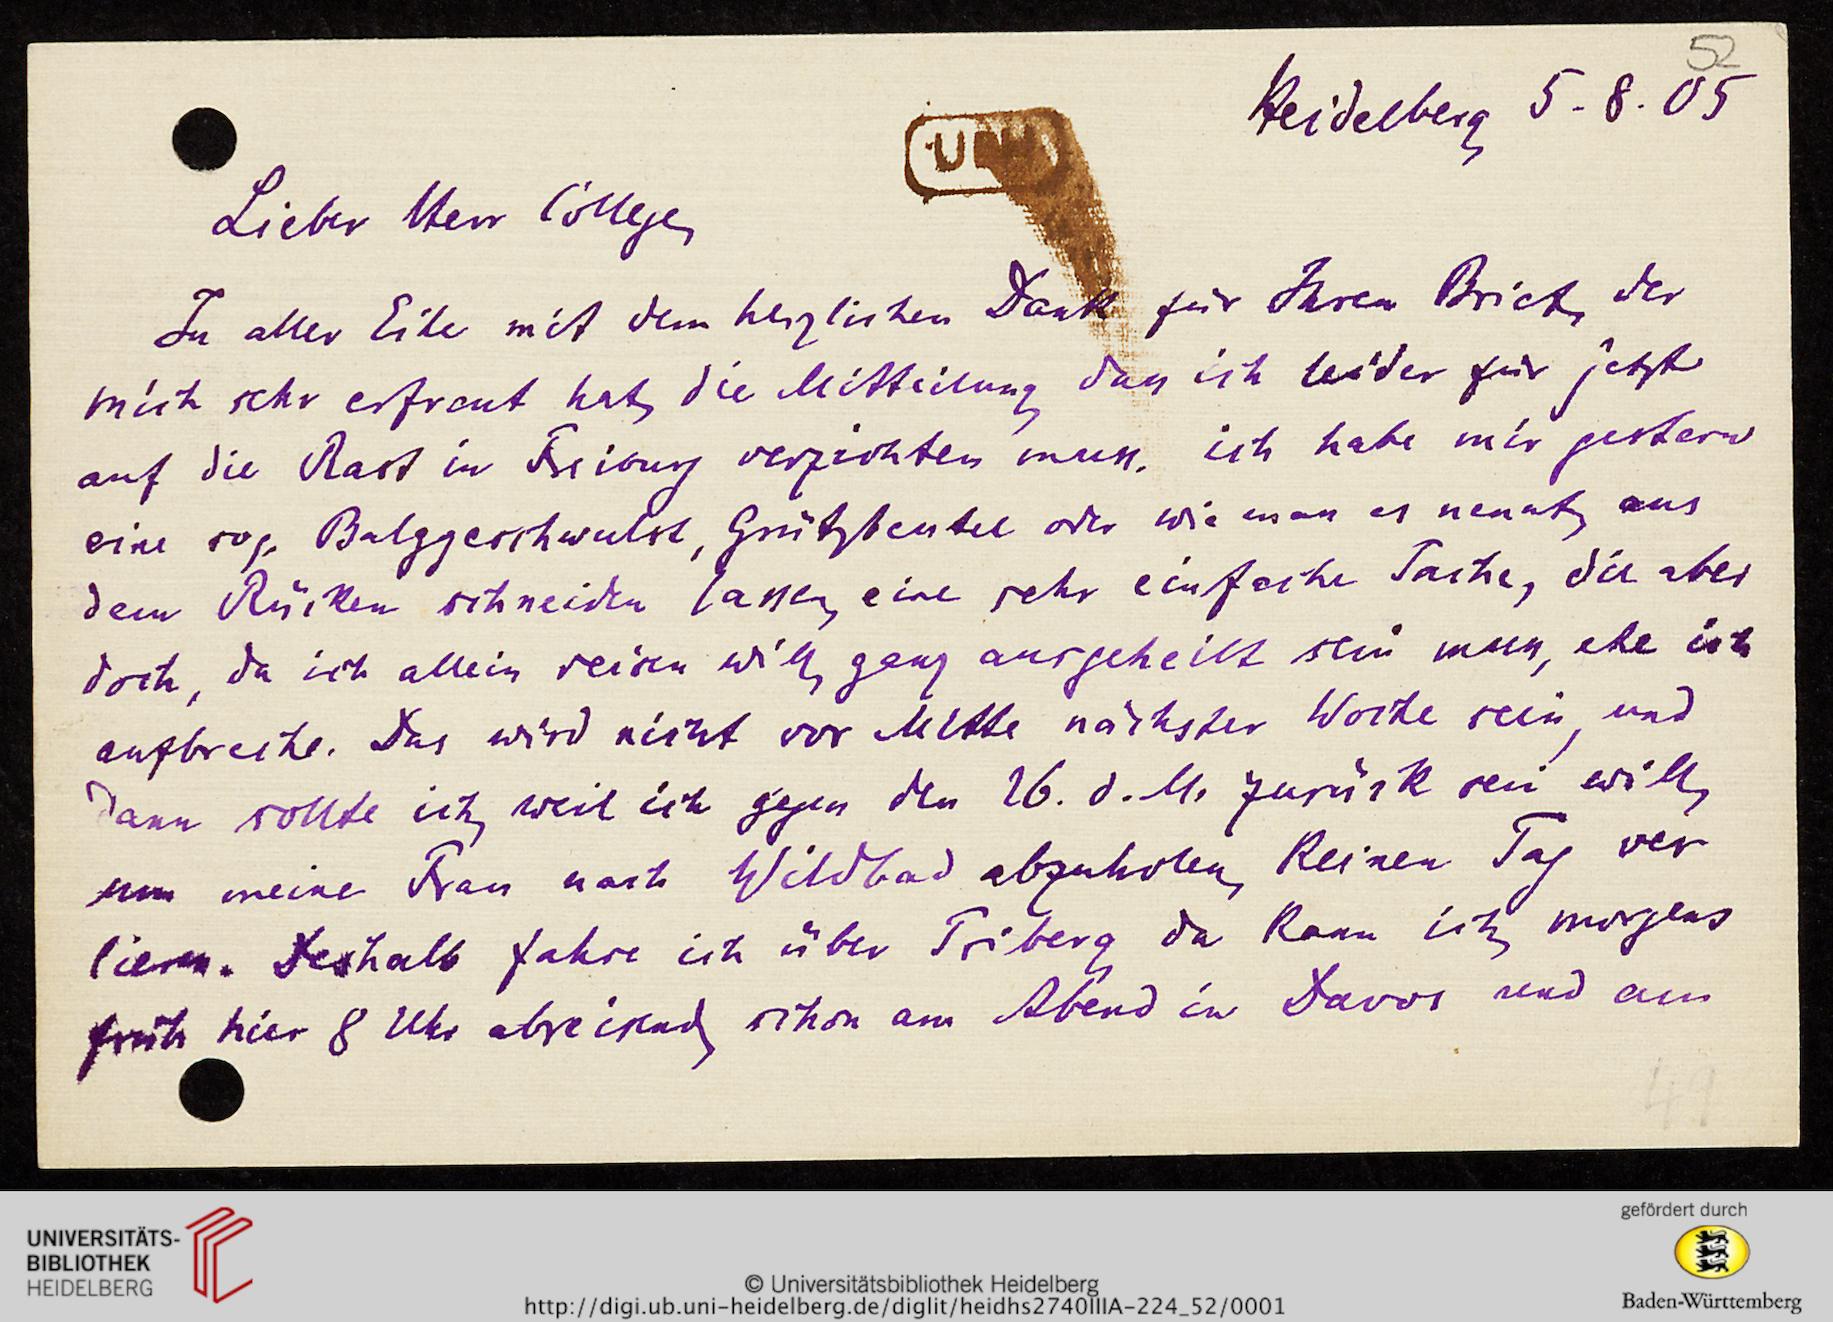 52
Heidelberg 5. 8. 05
UBH
Lieber Herr College,
In aller Eile mit dem herzlichen Dank für Ihren Brief, der
mich sehr erfreut hat, die Mitteilung dass ich leider für jetzt
auf die Rast in Freiburg verzichten muss. ich habe mir gestern
eine sog. Balggeschwulst, Grützbeutel oder wie man es nennt, aus
dem Rücken schneiden lassen, eine sehr einfache Sache, die aber
doch, da ich allein reisen will, ganz ausgeheilt sein muss, ehe ich
aufbreche. Das wird nicht vor Mitte nächster Woche sein, und
dann sollte ich, weil ich gegen den 26. d. M. zurück sein will,
um meine Frau nach Wildbad abzuholen, keinen Tag ver
lieren. Deshalb fahre ich über Triberg da kann ich, morgens
früh hier 8 Uhr abreisend, schon am Abend in Davos und am
49
UNIVERSITÄTS-
BIBLIOTHEK
HEIDELBERG
© Universitätsbibliothek Heidelberg
http://digi.ub.uni-heidelberg.de/diglit/heidhs2740IIIA-224_52/0001
gefördert durch
Baden-Württemberg